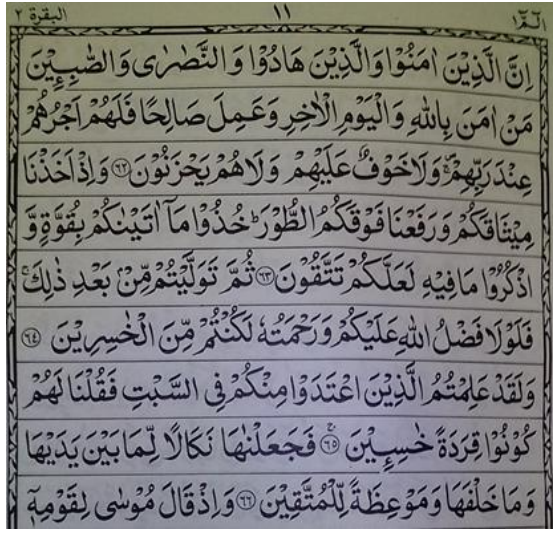 البقرة ٢ ١١ الٓمّٓ ١
اِنَّ الَّذِيْنَ اٰمَنُوْا وَالَّذِيْنَ هَادُوْا وَالنَّصٰرٰى وَالصّٰبِـِٕيْنَ
مَنْ اٰمَنَ بِاللّٰهِ وَالْيَوْمِ الْاٰخِرِ وَعَمِلَ صَالِحًا فَلَهُمْ اَجْرُهُمْ
عِنْدَ رَبِّهِمْ ۚ وَلَا خَوْفٌ عَلَيْهِمْ وَلَا هُمْ يَحْزَنُوْنَ ﴿٦٢﴾ وَاِذْ اَخَذْنَا
مِيْثَاقَكُمْ وَرَفَعْنَا فَوْقَكُمُ الطُّوْرَ ؕ خُذُوْا مَاۤ اٰتَيْنٰكُمْ بِقُوَّةٍ وَّ
اذْكُرُوْا مَا فِيْهِ لَعَلَّكُمْ تَتَّقُوْنَ ﴿٦٣﴾ ثُمَّ تَوَلَّيْتُمْ مِّنْۢ بَعْدِ ذٰلِكَ ۚ
فَلَوْلَا فَضْلُ اللّٰهِ عَلَيْكُمْ وَرَحْمَتُهٗ لَكُنْتُمْ مِّنَ الْخٰسِرِيْنَ ﴿٦٤﴾
وَلَقَدْ عَلِمْتُمُ الَّذِيْنَ اعْتَدَوْا مِنْكُمْ فِى السَّبْتِ فَقُلْنَا لَهُمْ
كُوْنُوْا قِرَدَةً خٰسِـِٕيْنَ ﴿٦٥﴾ ۚ فَجَعَلْنٰهَا نَكَالًا لِّمَا بَيْنَ يَدَيْهَا
وَمَا خَلْفَهَا وَمَوْعِظَةً لِّلْمُتَّقِيْنَ ﴿٦٦﴾ وَاِذْ قَالَ مُوْسٰى لِقَوْمِهٖۤ